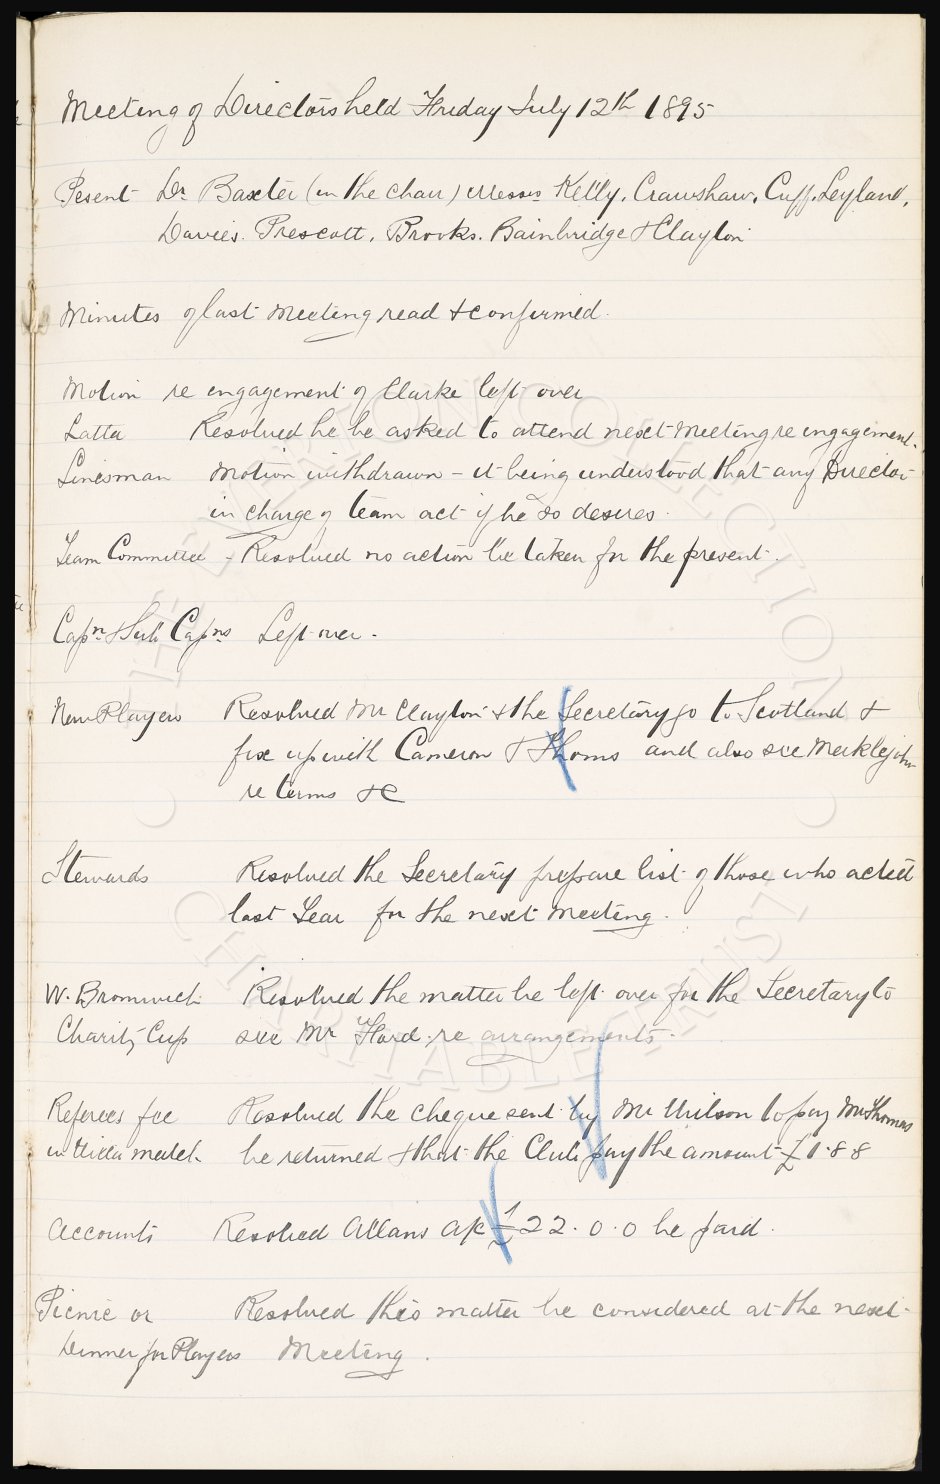 Meeting of Directors held Friday July 12th 1895
Present Dr Baxter (in the chair) Messrs Kelly, Crawshaw, Cuff, Leyland,
Davies. Prescott, Brooks. Bainbridge & Clayton
Minutes of last Meeting read & confirmed.
Motion re engagement of Clarke left over
Latta Resolved he be asked to attend next Meeting re engagement.
Linesman Motion withdrawn - it being understood that any Director
in charge of team act if he so desires.
Team Committee - Resolved no action be taken for the present.
Capn & Sub Capns Left over.
New Players Resolved Mr Clayton & the Secretary go to Scotland &
fix up with Cameron & Thoms and also see Meiklejohn
re terms &c
Stewards Resolved the Secretary prepare list of those who acted
last Year for the next Meeting.
W. Bromwich Resolved the matter be left over for the Secretary to
Charity Cup see Mr Ford re arrangements.
Referees fee Resolved the cheque sent by Mr Wilson to pay Mr Thomas
in Villa match be returned & that the Club pay the amount £1.8.8
Accounts Resolved Allans a/c £22.0.0 be paid.
Picnic or Resolved this matter be considered at the next
Dinner for Players Meeting.
THE EVERTON COLLECTION
CHARITABLE TRUST